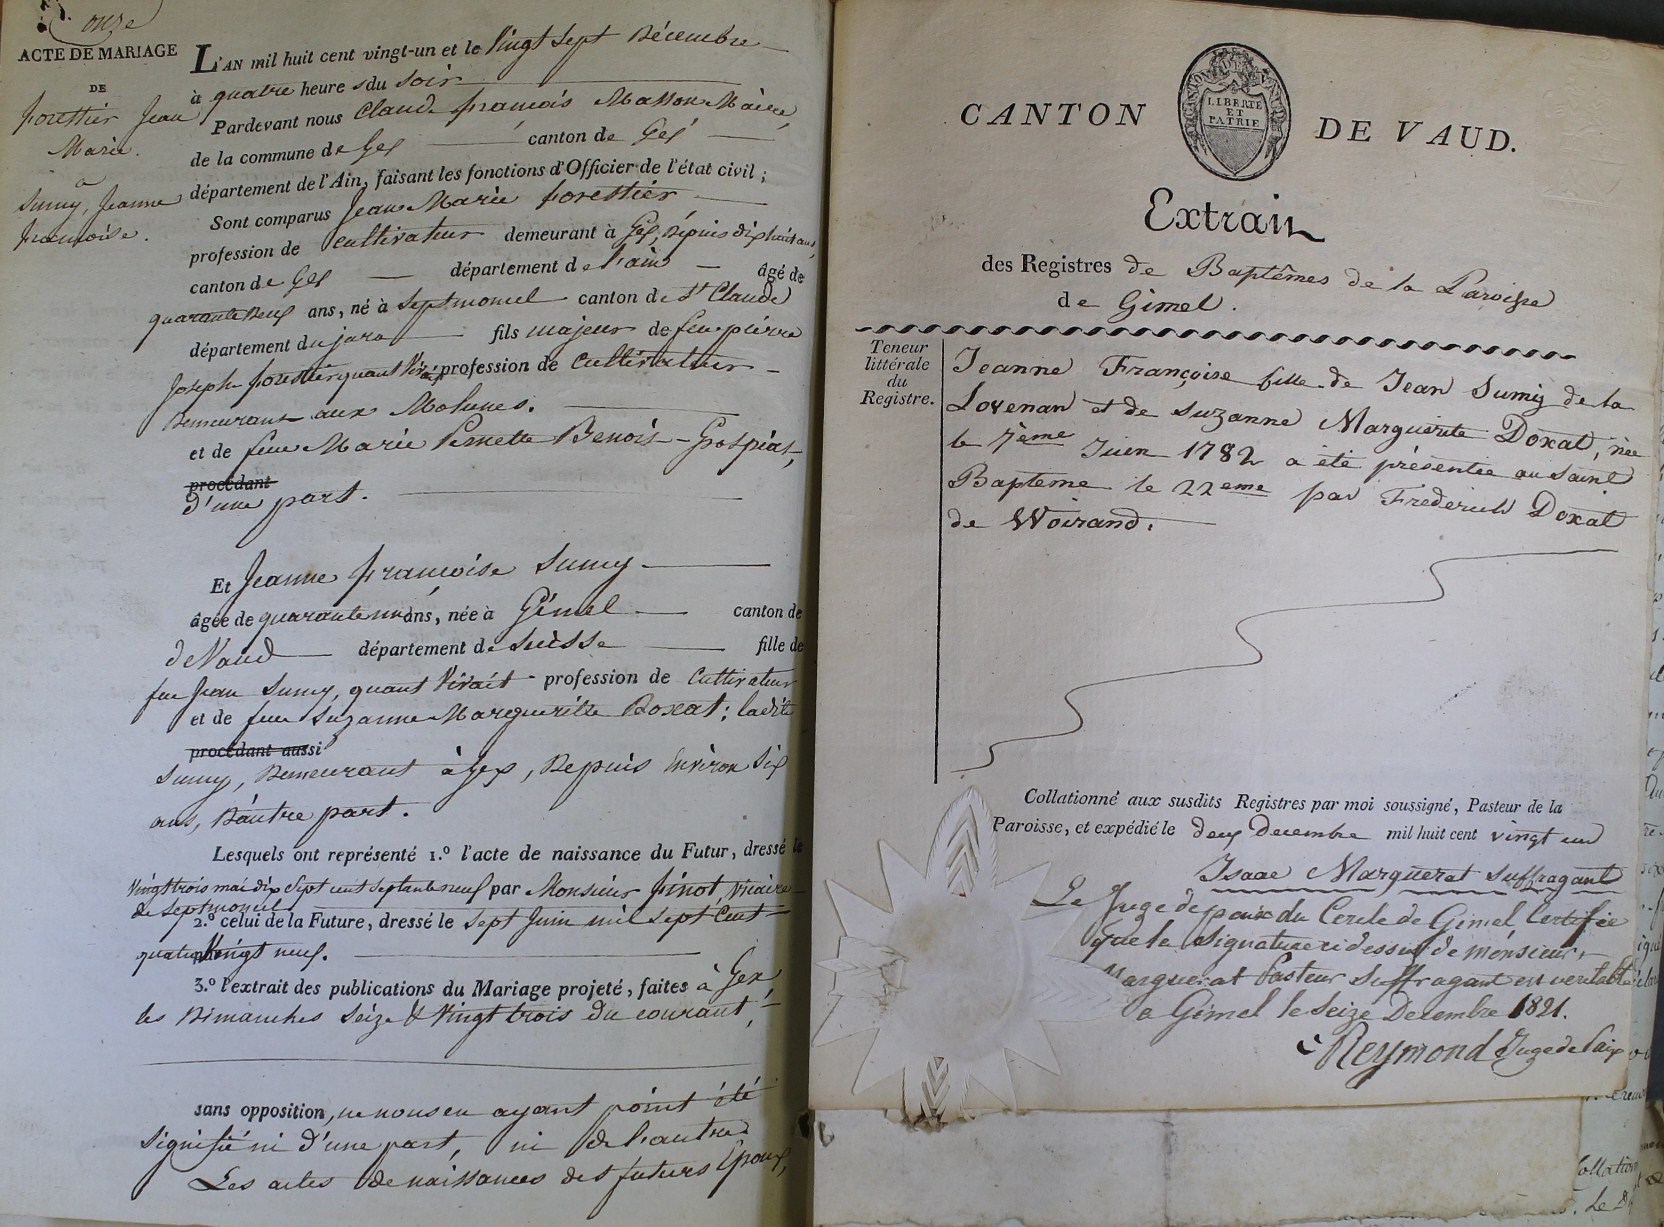 onze
ACTE DE MARIAGE
DE
forestier Jean
Marie.
à
Sumy, Jeanne
françoise.
L'AN mil huit cent vingt-un et le Vingt Sept Décembre
à quatre heures du Soir
Pardevant nous Claude françois Masson Maire,
de la commune de Gex canton de Gex
département de l'Ain, faisant les fonctions d'Officier de l'état civil ;
Sont comparus Jean Marie forestier
profession de cultivateur demeurant à Gex, Depuis dix huit ans,
canton de Gex département de l'ain âgé de
quarante deux ans, né à Septmoncel canton de St Claude
département du jura fils majeur de feu pierre
Joseph forestier quant Vivait profession de Cultivateur
Demeurant aux Molunes.
et de feue Marie Pernette Benoit-Gros piat,
procédant
D'une part.
Et Jeanne françoise Sumy
âgée de quarante un ans, née à Gimel canton de
de Vaud département de Suisse fille de
feu Jean Sumy, quant Vivait profession de Cultivateur
et de feue Suzanne Margueritte Doxat ; ladite
procédant aussi
Sumy, Demeurant à Gex, Depuis Environ Six
ans, D'autre part.
Lesquels ont représenté 1.º l'acte de naissance du Futur, dressé le
Vingt trois mai dix Sept cent Septante neuf par Monsieur Jinot, Vicaire
de Septmoncel
2.º celui de la Future, dressé le Sept Juin mil Sept Cent
quatre Vingt neuf.
3.º l'extrait des publications du Mariage projeté, faites à Gex,
les Dimanches Seize & Vingt trois Du courant,
sans opposition, ne nous en ayant point été
Signifié ni D'une part, ni De l'autre
Les actes De naissances des futurs Epoux,
CANTON DE VAUD.
CANTON DE VAUD
LIBERTÉ
ET
PATRIE
Extrait
des Registres de Baptêmes de la Paroisse
de Gimel.
Teneur
littérale
du
Registre.
Jeanne Françoise fille de Jean Sumy de la
Lovenan et de Suzanne Marguerite Doxat, née
le 7eme Juin 1782 a été présentée au saint
Bapteme le 22eme par Frederich Doxat
de Woirand.
Collationné aux susdits Registres par moi soussigné, Pasteur de la
Paroisse, et expédié le deux Decembre mil huit cent vingt un
Isaac Marguerat suffragant
Le Juge de paix du Cercle de Gimel Certifie
que la Signature ci dessus de monsieur
Marguerat Pasteur Suffragant est veritable
a Gimel le seize Decembre 1821.
Reymond Juge de Paix
Collation
Le